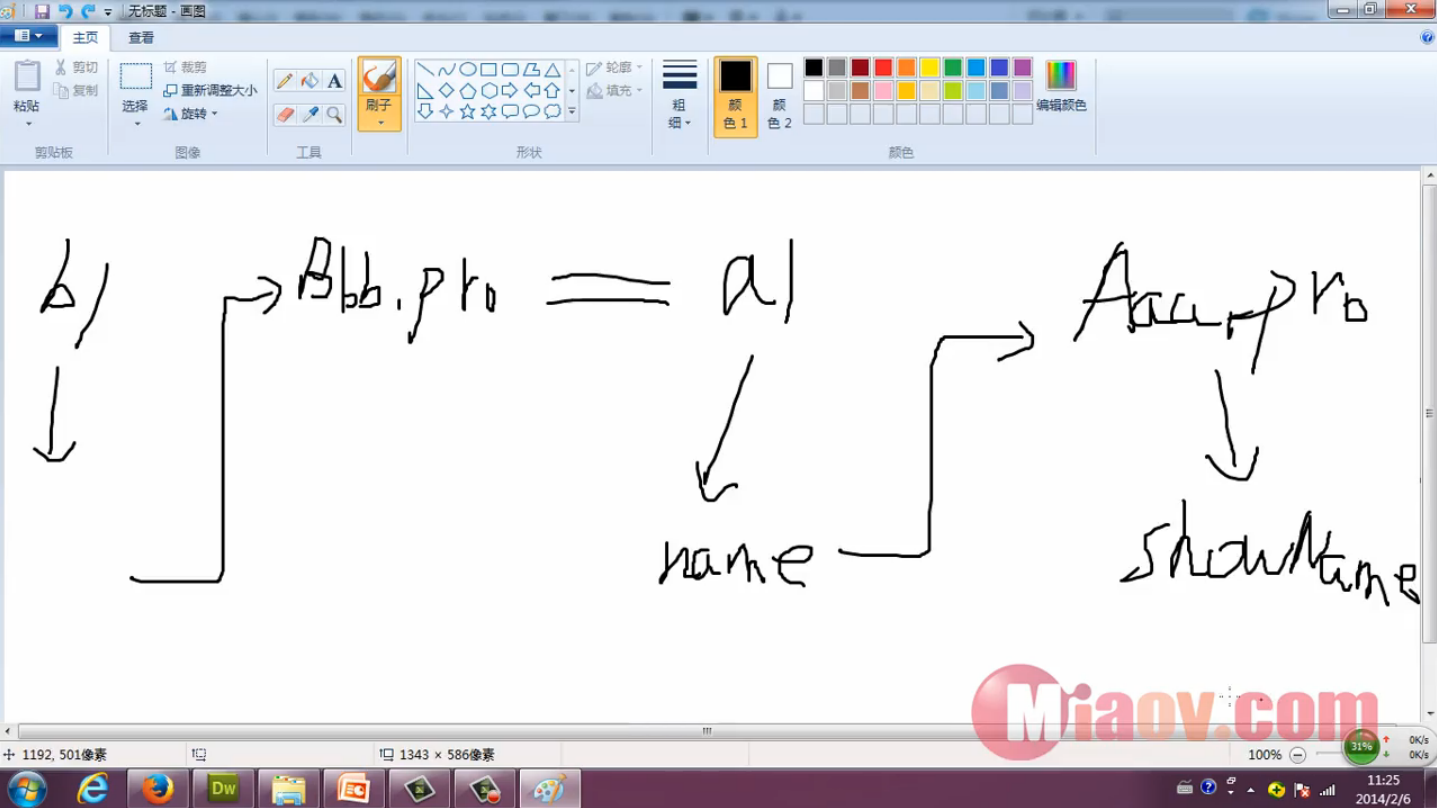 无标题 - 画图
主页 查看
剪切
复制
粘贴
剪贴板
裁剪
重新调整大小
旋转
选择
图像
A
工具
刷子
轮廓
填充
形状
粗细
颜色 1
颜色 2
编辑颜色
颜色
b1 Bbb.pro = a1 Aaa.pro
name showName
Miaov.com
1192, 501像素 1343 × 586像素 100% 31% 0K/s
0K/s
Dw 11:25
2014/2/6